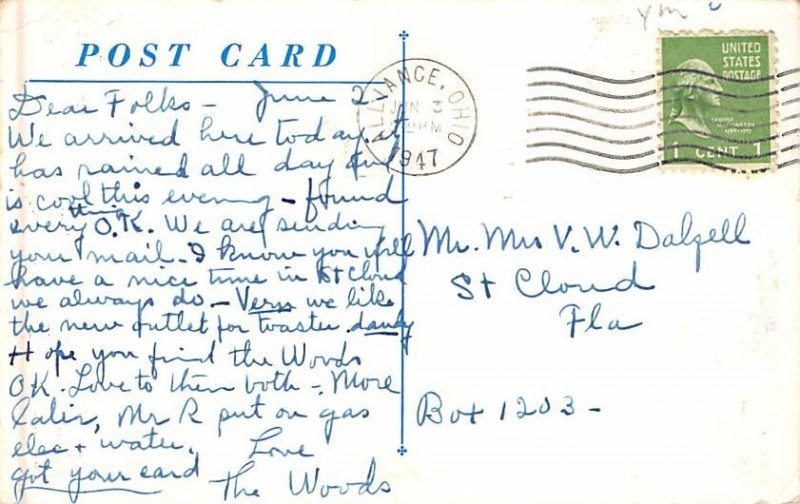 POST CARD
Dear Folks - June 2
We arrived here today it
has rained all day and
is cool this evening - found
every thing O.K. We are sending
your mail - I know you will
have a nice time in St Cloud
we always do - Vern we like
the new outlet for toaster. dandy
Hope you find the Woods
OK. Love to them both - More
later, Mr R put on gas
elec + water. Love
got your card The Woods
ALLIANCE, OHIO
JUN 3
PM
1947
UNITED
STATES
POSTAGE
1 CENT 1
Mr. Mrs V. W. Dalzell
St Cloud
Fla
Box 1203 -